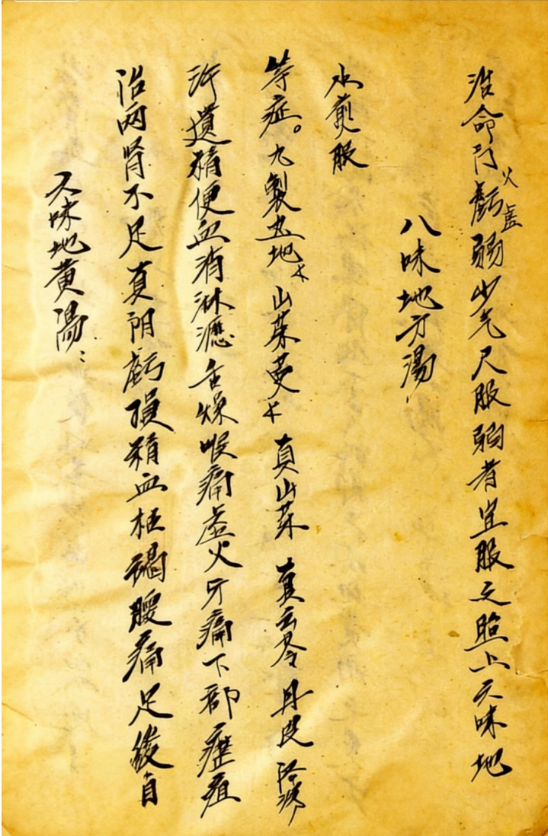 六味地黄湯：
治两腎不足真阴虧損精血枯竭腰痛足痿自
汗遺精便血消淋瀝舌燥喉痛虚火牙痛下部瘡疽
等症。九製熟地 山茱萸 真山药 真云苓 丹皮 泽泻
水煎服
八味地方湯
治命门火虧虚弱少气尺脉弱者宜服之照上六味地